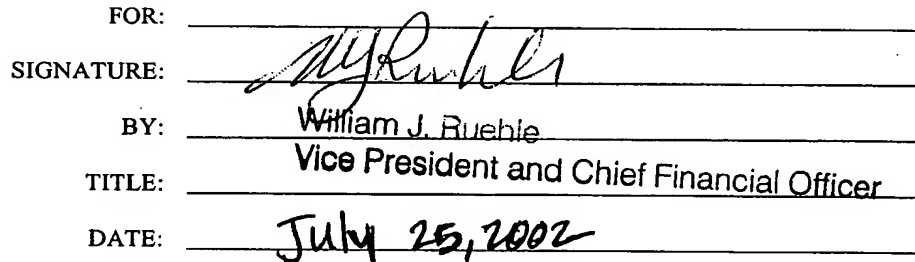 FOR:
SIGNATURE: WJRuehle
BY: William J. Ruehle
TITLE: Vice President and Chief Financial Officer
DATE: July 25, 2002